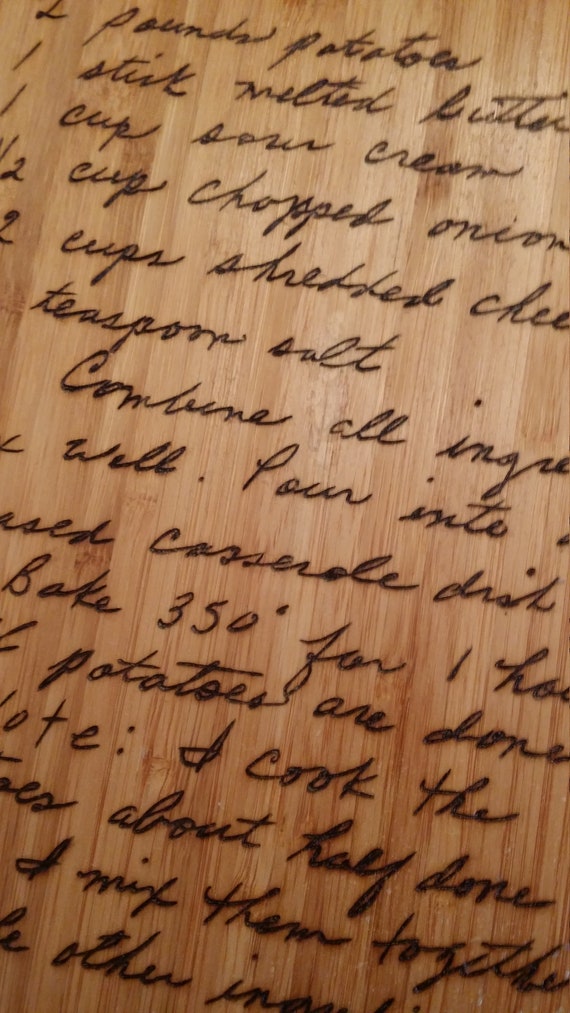 2 pounds potatoes
1 stick melted butter
1 cup sour cream
1/2 cup chopped onion
2 cups shredded chee
teaspoon salt
Combine all ingre
x well. Pour into
ased casserole dish
Bake 350° for 1 hou
potatoes are done
ote: I cook the
oes about half done
I mix them togethe
other ingredi